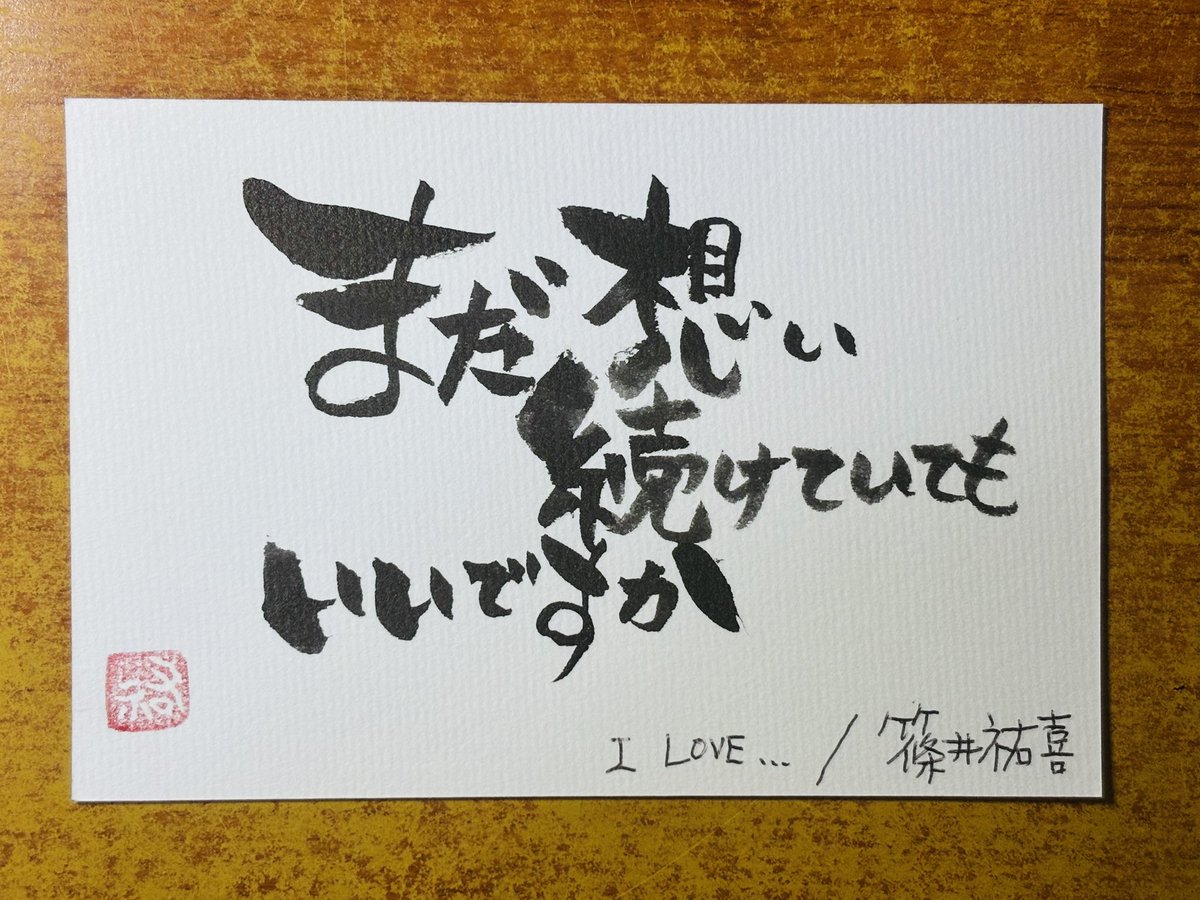 まだ想い
続けていても
いいですか
I LOVE... / 篠井祐喜